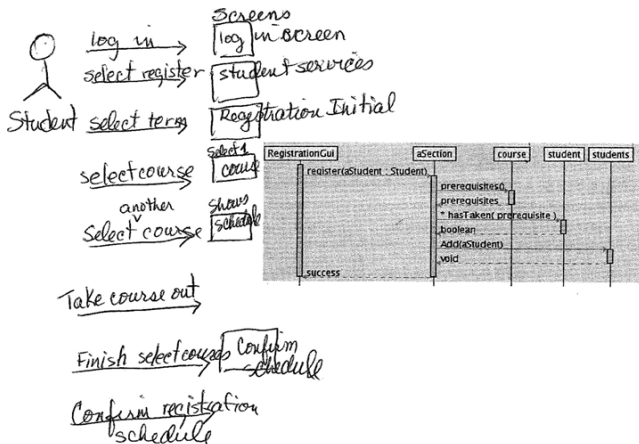 Screens
log in log in screen
select register student services
Student select term Registration Initial
select course select 1 course
select another course shows schedule
Take course out
Finish select courses Confirm schedule
Confirm registration schedule
RegistrationGui aSection course student students
register(aStudent : Student)
prerequisites()
prerequisites
* hasTaken( prerequisite )
boolean
Add(aStudent)
void
success